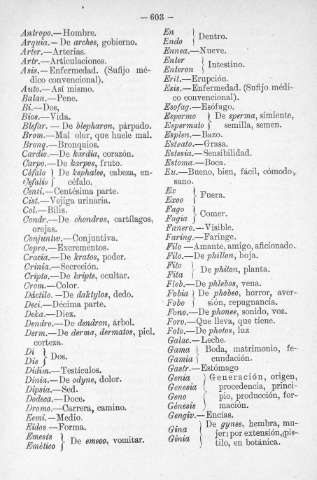 — 603 —
Antropo.—Hombre.
Arquia.— De arches, gobierno.
Arter.—Arterias.
Artr.—Articulaciones.
Asis.—Enfermedad. (Sufijo mé-
dico convencional).
Auto.—Así mismo.
Balan.—Pene.
Bi.—Dos,
Bios.—Vida.
Blefar. — De blepharon, párpado.
Brom.—Mal olor, que huele mal.
Brong.—Bronquios.
Cardio.—De kardia, corazón.
Carpo.—De karpos, fruto.
Céfalo } De kephales, cabeza, en-
Osfalio } céfalo.
Centi.—Centésima parte.
Cist.—Vejiga urinaria.
Col.—Bilis.
Condr.—De chondros, cartílagos,
orejas.
Conjuntiv.—Conjuntiva.
Copro.—Excrementos.
Cracia.—De kratos, poder.
Crinia.—Secreción.
Cripto.— De kripte, ocultar.
Crom.—Color.
Dáctilo. —De daktylos, dedo.
Deci.—Décima parte.
Deka.—Diez.
Dendro.—De dendron, árbol.
Derm.—De derma, dermatos, piel,
corteza.
Di } Dos.
Dis
Didim.—Testículos.
Dinia.—De odyne, dolor.
Dipsia.—Sed.
Dodeca.—Doce.
Dromo.—Carrera, camino.
Eemi.—Medio.
Eidos —Forma.
Emesis } De emeoo, vomitar.
Emético
En } Dentro.
Endo
Ennea.—Nueve.
Enter } Intestino.
Enteron
Erit.—Erupción.
Esis.—Enfermedad. (Sufijo médi-
co convencional).
Esofag.—Esófago.
Espermo } De sperma, simiente,
Espermato } semilla, semen.
Esplen.—Bazo.
Esteato.—Grasa.
Estesia.—Sensibilidad.
Estoma.—Boca.
Eu.—Bueno, bien, fácil, cómodo,
sano.
Ex } Fuera.
Exoo
Fago } Comer.
Fagia
Fanero.—Visible.
Faring.—Faringe.
Filo —Amante, amigo, aficionado.
Filo.—De phillon, hoja.
Fito } De phiton, planta.
Fita
Fleb.—De phlebos, vena.
Fobia } De phobeo, horror, aver-
Fobo } sión, repugnancia.
Fono.—De phones, sonido, voz.
Foro.—Que lleva, que tiene.
Foto.—De photos, luz
Galac.—Leche.
Gama } Boda, matrimonio, fe-
Gamia } cundación.
Gastr.—Estómago
Genia } Generación, origen,
Genesia } procedencia, princi-
Geno } pio, producción, for-
Génesis } mación.
Gengiv.—Encías.
Gina } De gynes, hembra, mu-
jer; por extensión, pis-
Ginia } tilo, en botánica.